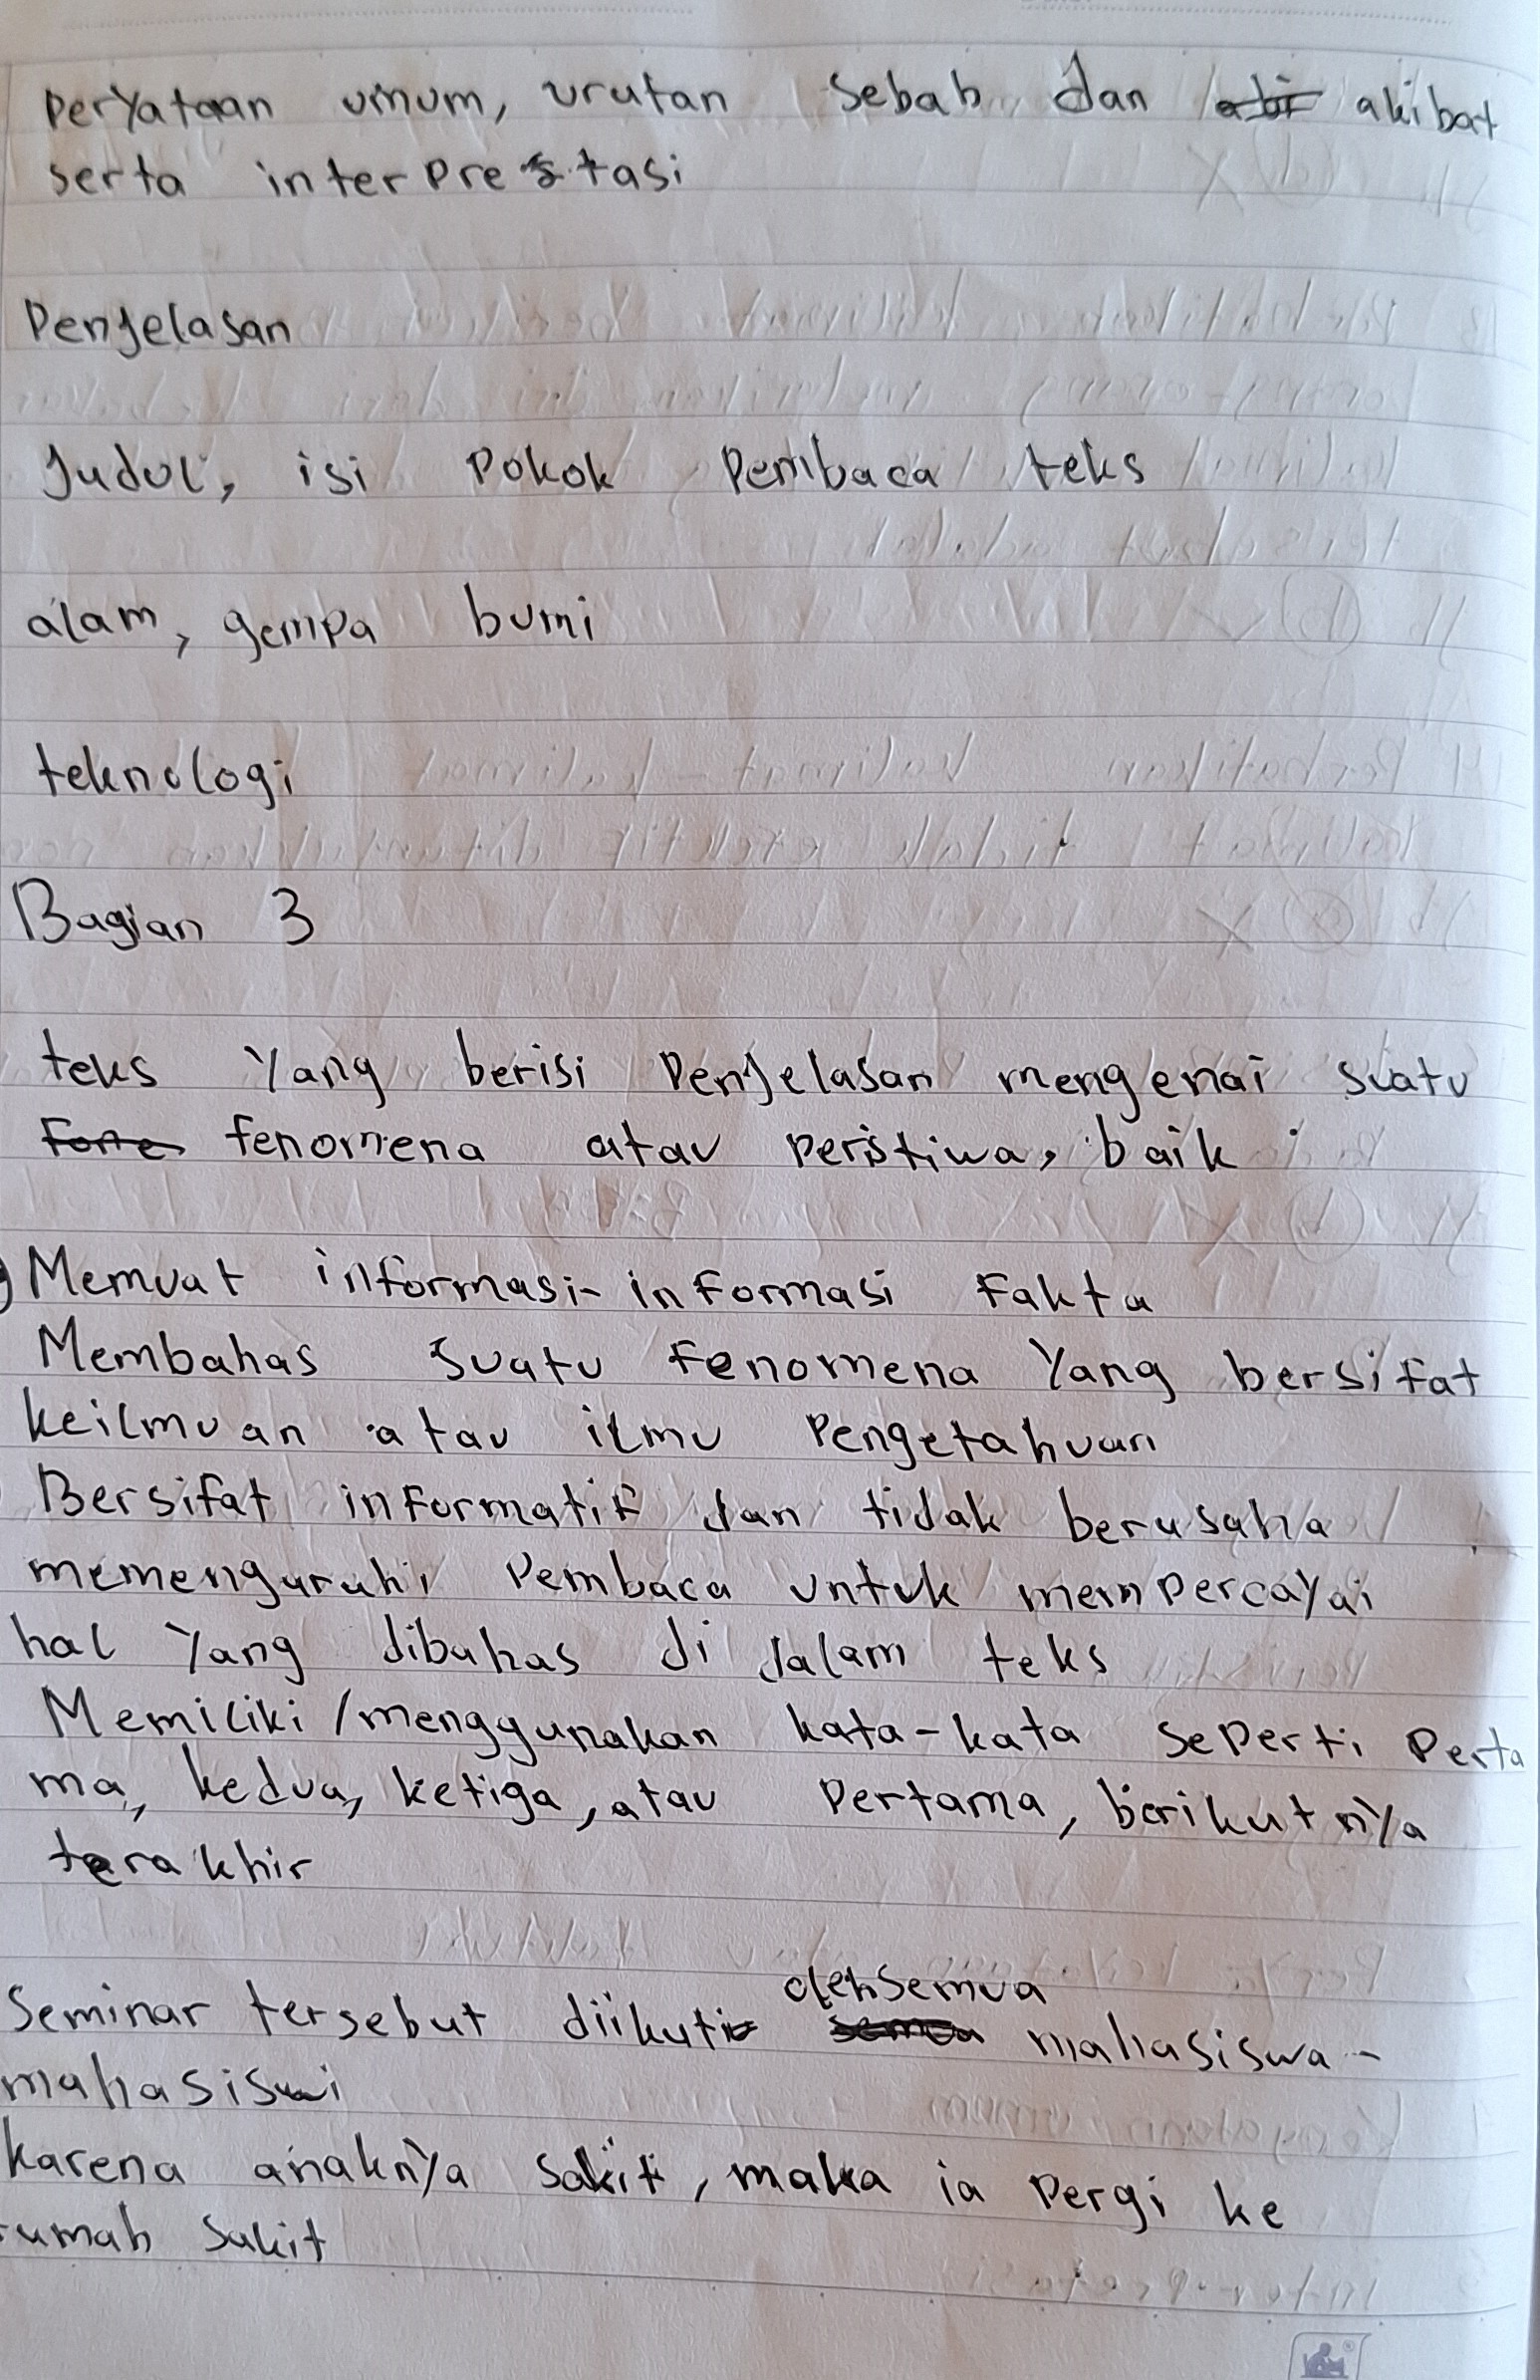 Peryataan umum, urutan sebab dan akibat
serta interpretasi
Penjelasan
Judul, isi pokok pembaca teks
alam, gempa bumi
teknologi
Bagian 3
teks yang berisi penjelasan mengenai suatu
fenomena atau peristiwa, baik
Memuat informasi-informasi fakta
Membahas suatu fenomena yang bersifat
keilmuan atau ilmu pengetahuan
Bersifat informatif dan tidak berusaha
memengaruhi pembaca untuk mempercayai
hal yang dibahas di dalam teks
Memiliki/menggunakan kata-kata seperti perta
ma, kedua, ketiga, atau pertama, berikutnya
terakhir
Seminar tersebut diikuti oleh semua mahasiswa-
mahasiswi
karena anaknya sakit, maka ia pergi ke
rumah sakit